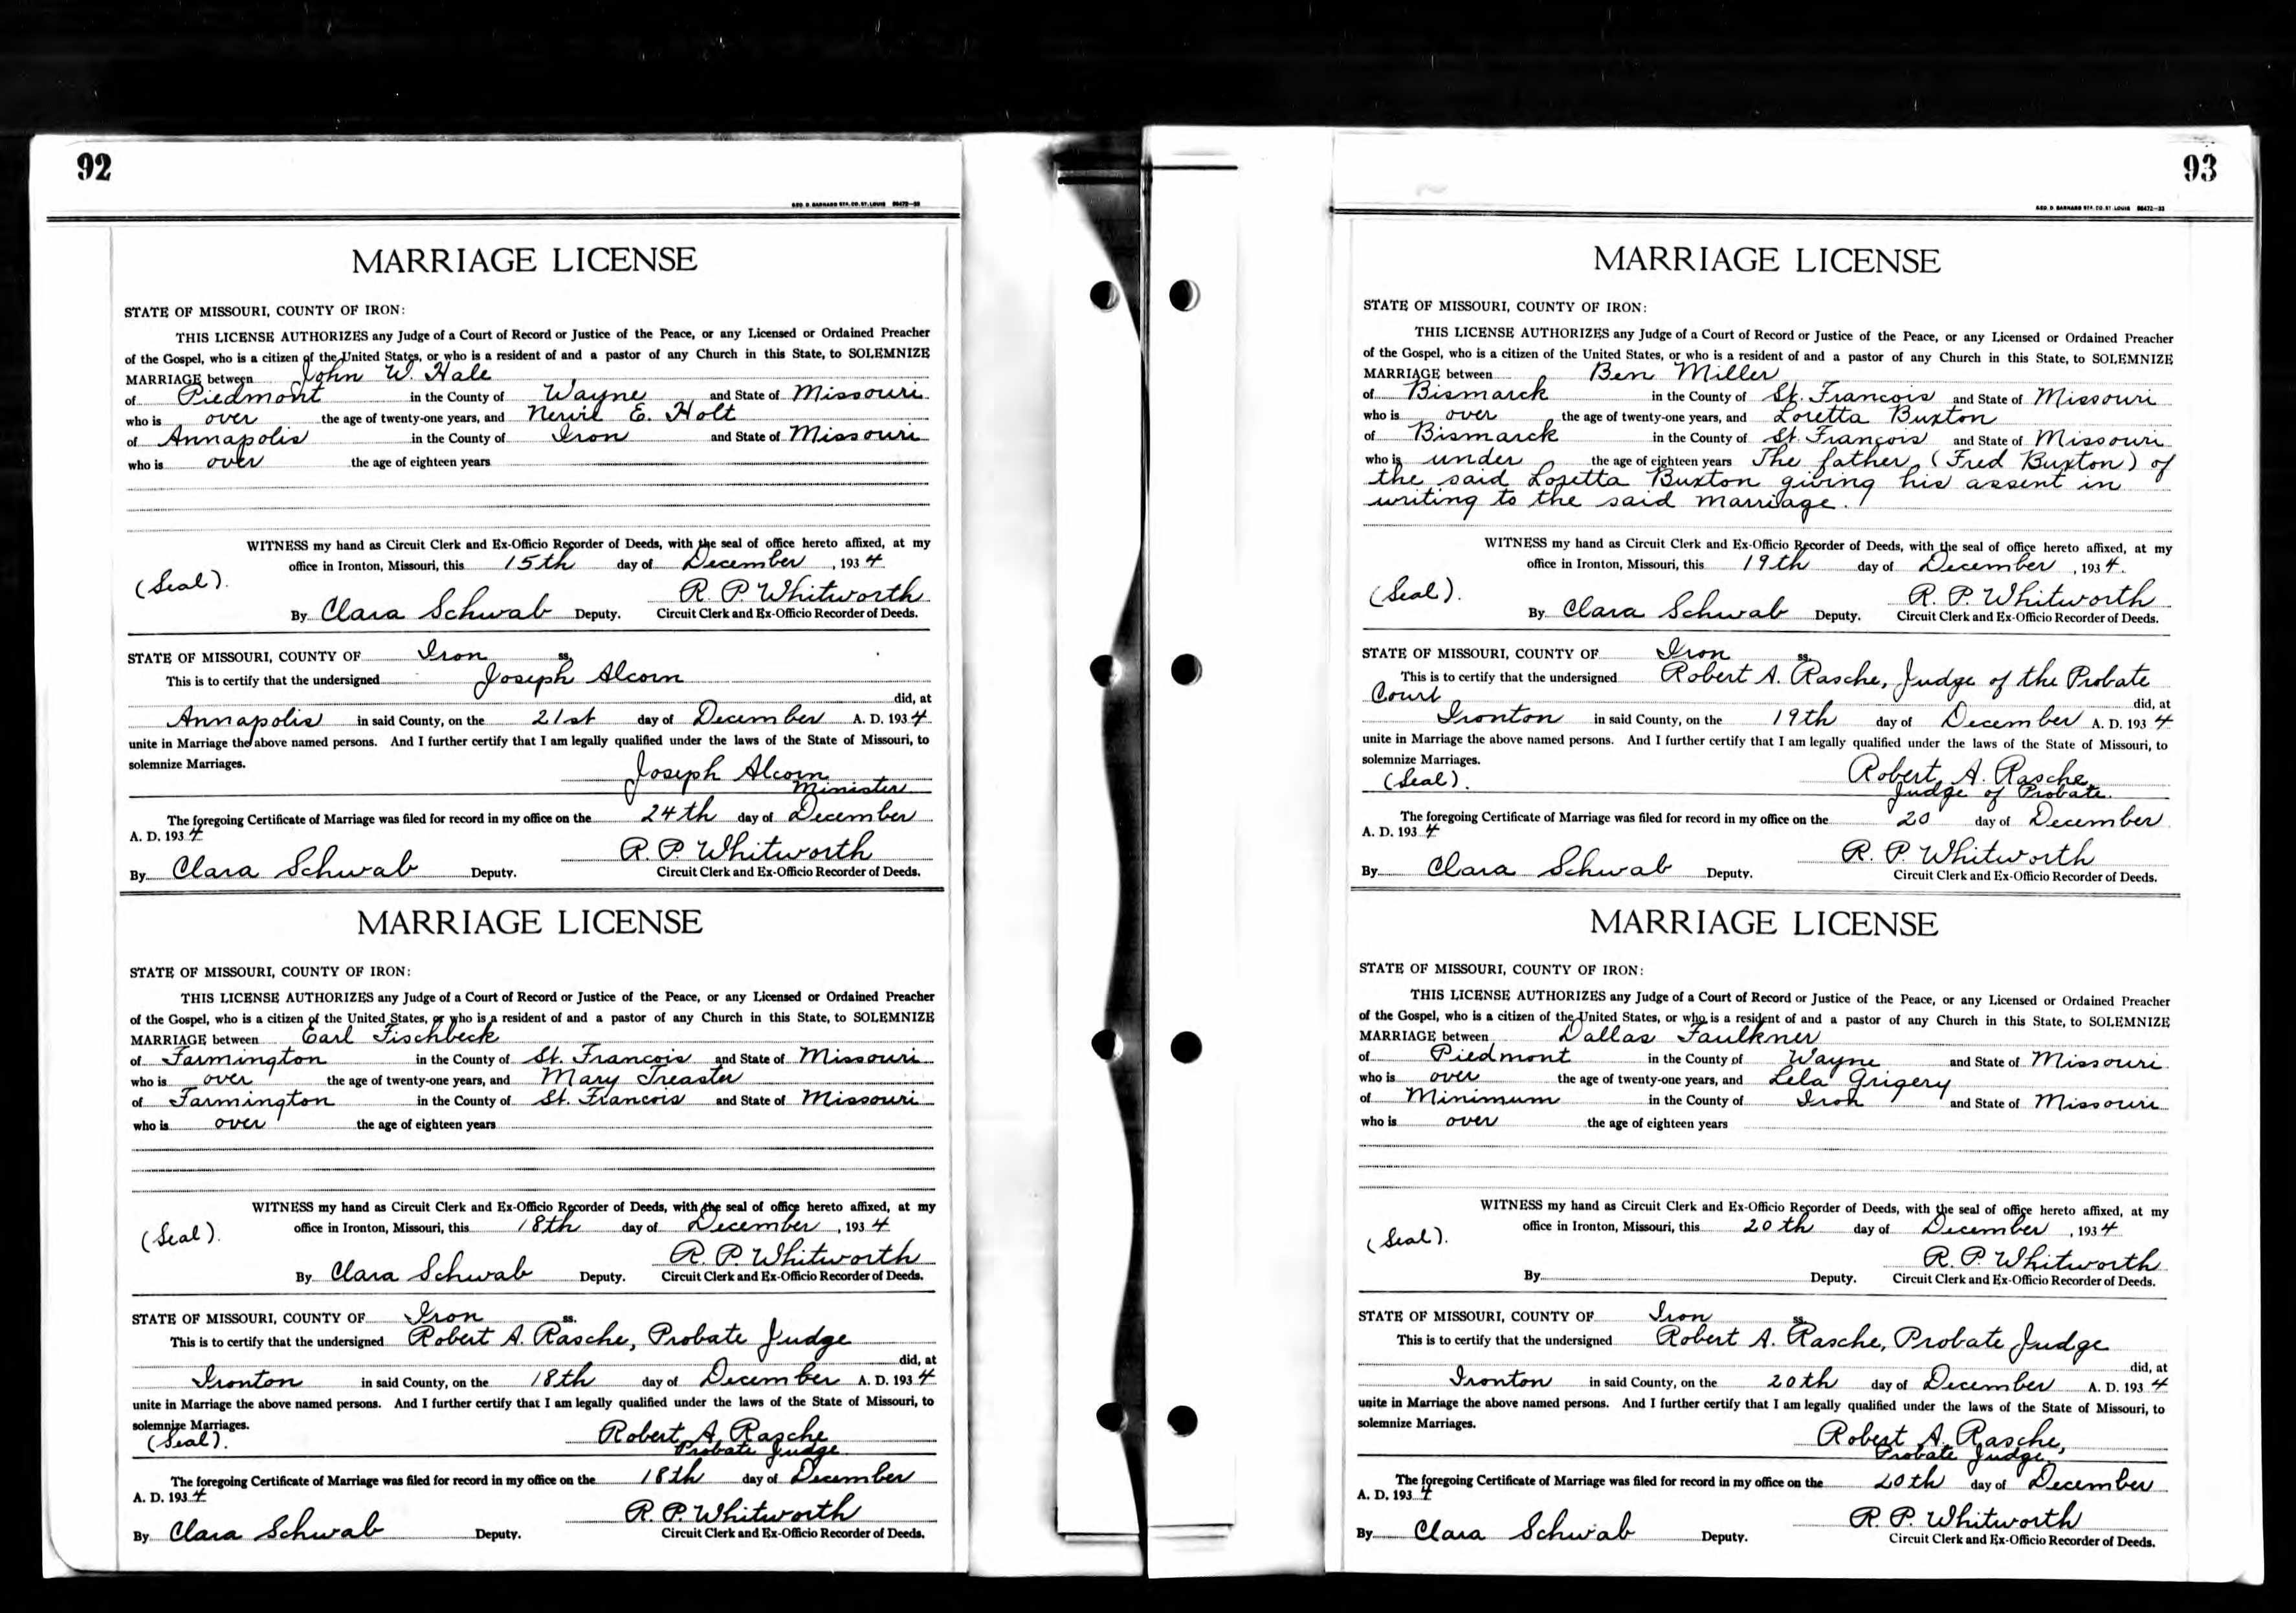 92
GEO. D. BARNARD STA. CO. ST. LOUIS 86472-33
MARRIAGE LICENSE
STATE OF MISSOURI, COUNTY OF IRON:
THIS LICENSE AUTHORIZES any Judge of a Court of Record or Justice of the Peace, or any Licensed or Ordained Preacher
of the Gospel, who is a citizen of the United States, or who is a resident of and a pastor of any Church in this State, to SOLEMNIZE
MARRIAGE between John W. Hale
of Piedmont in the County of Wayne and State of Missouri
who is over the age of twenty-one years, and E. Holt
of Annapolis in the County of Iron and State of Missouri
who is over the age of eighteen years
WITNESS my hand as Circuit Clerk and Ex-Officio Recorder of Deeds, with the seal of office hereto affixed, at my
office in Ironton, Missouri, this 15th day of December, 1934
(Seal). R. P. Whitworth
By Clara Schwab Deputy. Circuit Clerk and Ex-Officio Recorder of Deeds.
STATE OF MISSOURI, COUNTY OF Iron ss.
This is to certify that the undersigned Joseph Alcorn
did, at
Annapolis in said County, on the 21st day of December A. D. 1934
unite in Marriage the above named persons. And I further certify that I am legally qualified under the laws of the State of Missouri, to
solemnize Marriages.
Joseph Alcorn
Minister
The foregoing Certificate of Marriage was filed for record in my office on the 24th day of December
A. D. 1934
R. P. Whitworth
By Clara Schwab Deputy. Circuit Clerk and Ex-Officio Recorder of Deeds.
MARRIAGE LICENSE
STATE OF MISSOURI, COUNTY OF IRON:
THIS LICENSE AUTHORIZES any Judge of a Court of Record or Justice of the Peace, or any Licensed or Ordained Preacher
of the Gospel, who is a citizen of the United States, or who is a resident of and a pastor of any Church in this State, to SOLEMNIZE
MARRIAGE between Earl Fischbeck
of Farmington in the County of St. Francois and State of Missouri
who is over the age of twenty-one years, and Mary Treaster
of Farmington in the County of St. Francois and State of Missouri
who is over the age of eighteen years
WITNESS my hand as Circuit Clerk and Ex-Officio Recorder of Deeds, with the seal of office hereto affixed, at my
office in Ironton, Missouri, this 18th day of December, 1934
(Seal). R. P. Whitworth
By Clara Schwab Deputy. Circuit Clerk and Ex-Officio Recorder of Deeds.
STATE OF MISSOURI, COUNTY OF Iron ss.
This is to certify that the undersigned Robert A. Rasche, Probate Judge
did, at
Ironton in said County, on the 18th day of December A. D. 1934
unite in Marriage the above named persons. And I further certify that I am legally qualified under the laws of the State of Missouri, to
solemnize Marriages.
(Seal). Robert A. Rasche
Probate Judge
The foregoing Certificate of Marriage was filed for record in my office on the 18th day of December
A. D. 1934
R. P. Whitworth
By Clara Schwab Deputy. Circuit Clerk and Ex-Officio Recorder of Deeds.
93
GEO. D. BARNARD STA. CO. ST. LOUIS 86472-33
MARRIAGE LICENSE
STATE OF MISSOURI, COUNTY OF IRON:
THIS LICENSE AUTHORIZES any Judge of a Court of Record or Justice of the Peace, or any Licensed or Ordained Preacher
of the Gospel, who is a citizen of the United States, or who is a resident of and a pastor of any Church in this State, to SOLEMNIZE
MARRIAGE between Ben Miller
of Bismarck in the County of St. Francois and State of Missouri
who is over the age of twenty-one years, and Loretta Buxton
of Bismarck in the County of St. Francois and State of Missouri
who is under the age of eighteen years The father (Fred Buxton) of
the said Loretta Buxton giving his assent in
writing to the said marriage.
WITNESS my hand as Circuit Clerk and Ex-Officio Recorder of Deeds, with the seal of office hereto affixed, at my
office in Ironton, Missouri, this 19th day of December, 1934.
(Seal). R. P. Whitworth
By Clara Schwab Deputy. Circuit Clerk and Ex-Officio Recorder of Deeds.
STATE OF MISSOURI, COUNTY OF Iron ss.
This is to certify that the undersigned Robert A. Rasche, Judge of the Probate
Court did, at
Ironton in said County, on the 19th day of December A. D. 1934
unite in Marriage the above named persons. And I further certify that I am legally qualified under the laws of the State of Missouri, to
solemnize Marriages.
(Seal). Robert A. Rasche
Judge of Probate.
The foregoing Certificate of Marriage was filed for record in my office on the 20 day of December
A. D. 1934
R. P. Whitworth
By Clara Schwab Deputy. Circuit Clerk and Ex-Officio Recorder of Deeds.
MARRIAGE LICENSE
STATE OF MISSOURI, COUNTY OF IRON:
THIS LICENSE AUTHORIZES any Judge of a Court of Record or Justice of the Peace, or any Licensed or Ordained Preacher
of the Gospel, who is a citizen of the United States, or who is a resident of and a pastor of any Church in this State, to SOLEMNIZE
MARRIAGE between Dallas Faulkner
of Piedmont in the County of Wayne and State of Missouri
who is over the age of twenty-one years, and Lela Grigery
of Minimum in the County of Iron and State of Missouri
who is over the age of eighteen years
WITNESS my hand as Circuit Clerk and Ex-Officio Recorder of Deeds, with the seal of office hereto affixed, at my
office in Ironton, Missouri, this 20th day of December, 1934
(Seal). R. P. Whitworth
By Deputy. Circuit Clerk and Ex-Officio Recorder of Deeds.
STATE OF MISSOURI, COUNTY OF Iron ss.
This is to certify that the undersigned Robert A. Rasche, Probate Judge
did, at
Ironton in said County, on the 20th day of December A. D. 1934
unite in Marriage the above named persons. And I further certify that I am legally qualified under the laws of the State of Missouri, to
solemnize Marriages.
Robert A. Rasche,
Probate Judge.
The foregoing Certificate of Marriage was filed for record in my office on the 20th day of December
A. D. 1934
R. P. Whitworth
By Clara Schwab Deputy. Circuit Clerk and Ex-Officio Recorder of Deeds.